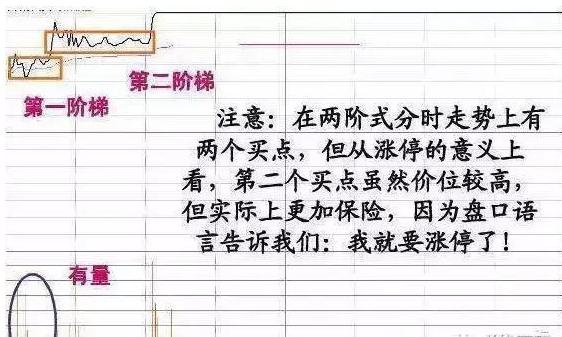 第二阶梯
第一阶梯
注意：在两阶式分时走势上有
两个买点，但从涨停的意义上
看，第二个买点虽然价位较高，
但实际上更加保险，因为盘口语
言告诉我们：我就要涨停了！
有量